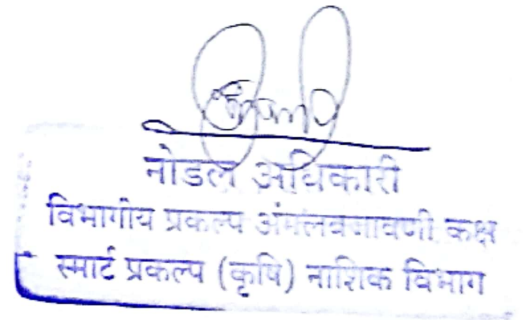 नोडल अधिकारी
विभागीय प्रकल्प अंमलबजावणी कक्ष
स्मार्ट प्रकल्प (कृषि) नाशिक विभाग